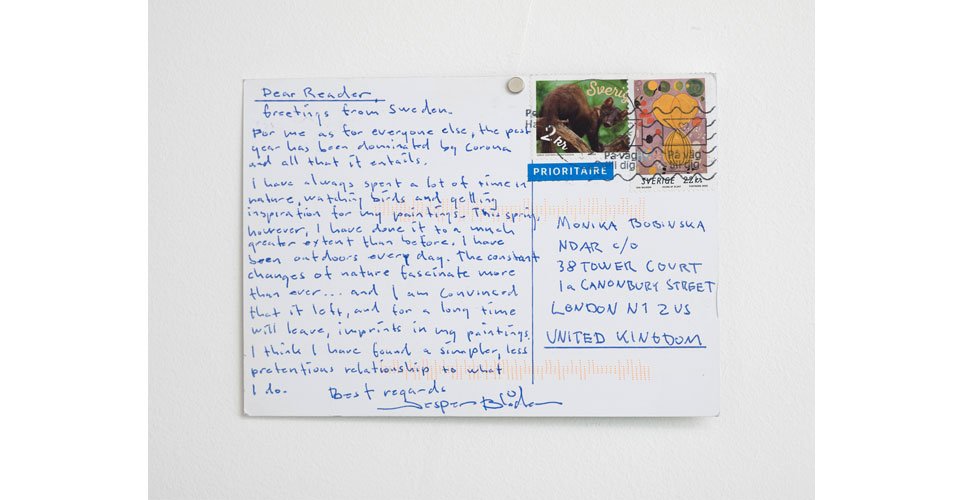 Dear Reader,
Greetings from Sweden.
For me as for everyone else, the past
year has been dominated by Corona
and all that it entails.
I have always spent a lot of time in
nature, watching birds and getting
inspiration for my paintings. This spring,
however, I have done it to a much
greater extent than before. I have
been outdoors every day. The constant
changes of nature fascinate more
than ever... and I am convinced
that it left, and for a long time
will leave, imprints in my paintings.
I think I have found a simpler, less
pretentious relationship to what
I do.
Best regards
Jesper Blåder
Sverige
2 kr
PRIORITAIRE
På väg
till dig
På väg
till dig
SVERIGE 22 KR
MONIKA BOBINSKA
NDAR c/o
38 TOWER COURT
1a CANONBURY STREET
LONDON N1 2US
UNITED KINGDOM